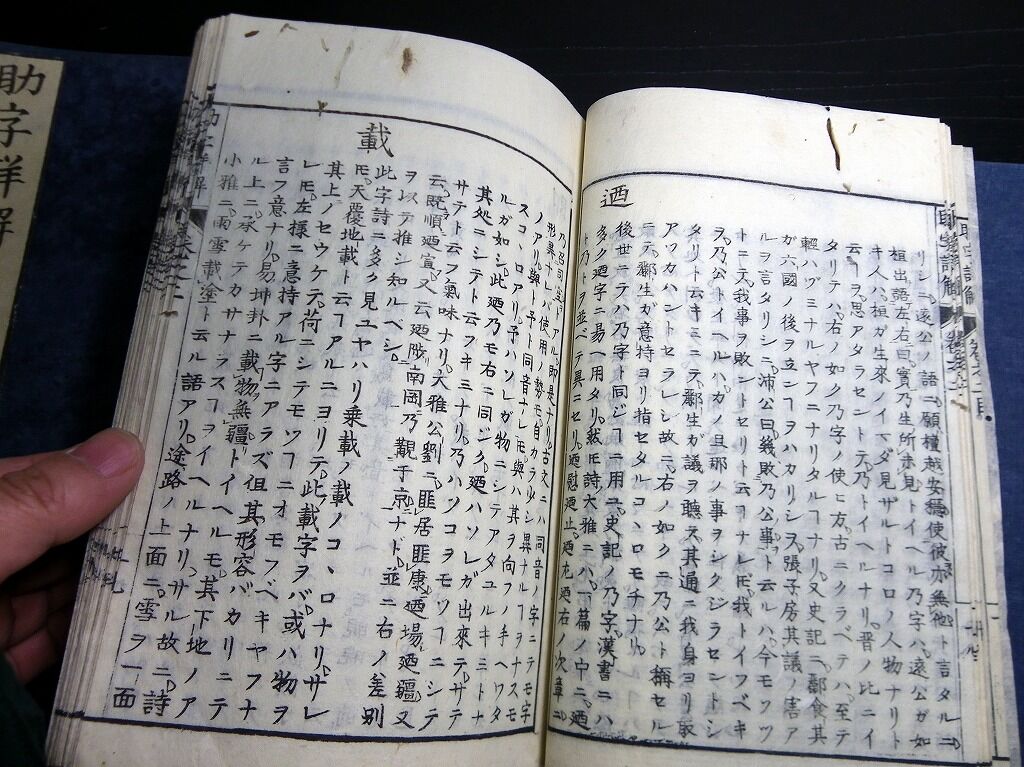 リシニ遠公ノ語ニ願檀越安穩使彼亦無他ト言タルヿ
桓出語左右曰實乃生所未見トイヘル乃字ハ遠公ガ如
キ人ハ桓ガ生來ノイマダ見ザルトコロノ人物ナリト
云ヿヲ思アタラセントテ乃トイヘルナリ晋ノ比ニイ
タリテハ右ノ如ク乃字ノ使ヒ方古ニクラベテハ至テ
輕ハヅミナルヤフニナリタルヿナリ又史記ニ酈食其
ガ六國ノ後ヲ立ンヿヲハカリシヲ張子房其議ノ害ア
ルヲ言タリシニ沛公曰幾敗乃公事ト云ルハ今モワツ
トニ天我事ヲ敗ントセリト云ヿナレ𪜈我トイフベキ
ヲ乃公トイヘルハガノ旦那ノ事ヲシクジラセントシ
タリト云キミニテ酈生ガ議ヲ聽ス其通ニ我身ヨリ取
アツカハントセラレシ故ニ右ノ如クニ乃公ト稱セル
ニテ酈生ガ意持ヨリ指セタルコヽロモチナリ
迺
後世ニテハ乃字ト同ジヿニ用ユ史記ノ乃字漢書ニハ
多ク迺字ニ易ヘ用タリ詩大雅ニハ一篇ノ中ニ迺
ト乃トヲ並ベテ異ニセリ迺慰迺止迺左迺右ノ次章ニ
ノアリ與ト予ト同音ナレ𪜈與ハ其ヲ向フノ手ヘワタ
スコヽロアリ予ハソレガ物ニシテアタユルキミトナ
ルガ如シ此迺乃モ右ニ同ジク迺ハソレガ出來テサテ
其処ニシテト云フキミナリ乃ハソコヲモツヿニシテ
サテト云フ氣味ナリ大雅公劉ニ匪居匪康迺場迺疆又
云既順迺宣又云迺陟南岡乃覯于京ナド並ニ右ノ差別
ヲ以テ推シ知ルベシ
載
此字詩ニ多ク見ユヤハリ乗載ノ載ノコヽロナリサレ
𪜈天覆地載ト云ヿアルニヨリテ此載字ヲバ或ハ物ヲ
其上ノセウケテ荷ニシテモツヿニオモフベキヤフナ
レ𪜈左様ニ意持アル字ニアラズ但其形容バカリニテ
言フ意ナリ易坤卦ニ載物無疆トイヘルモ其下地ノア
ル上ニ承ケテカサナラスヿヲイヘルナリサル故ニ詩
小雅ニ雨雪載塗ト云ル語アリ途路ノ上面ニ雪ヲ一面
助字詳解